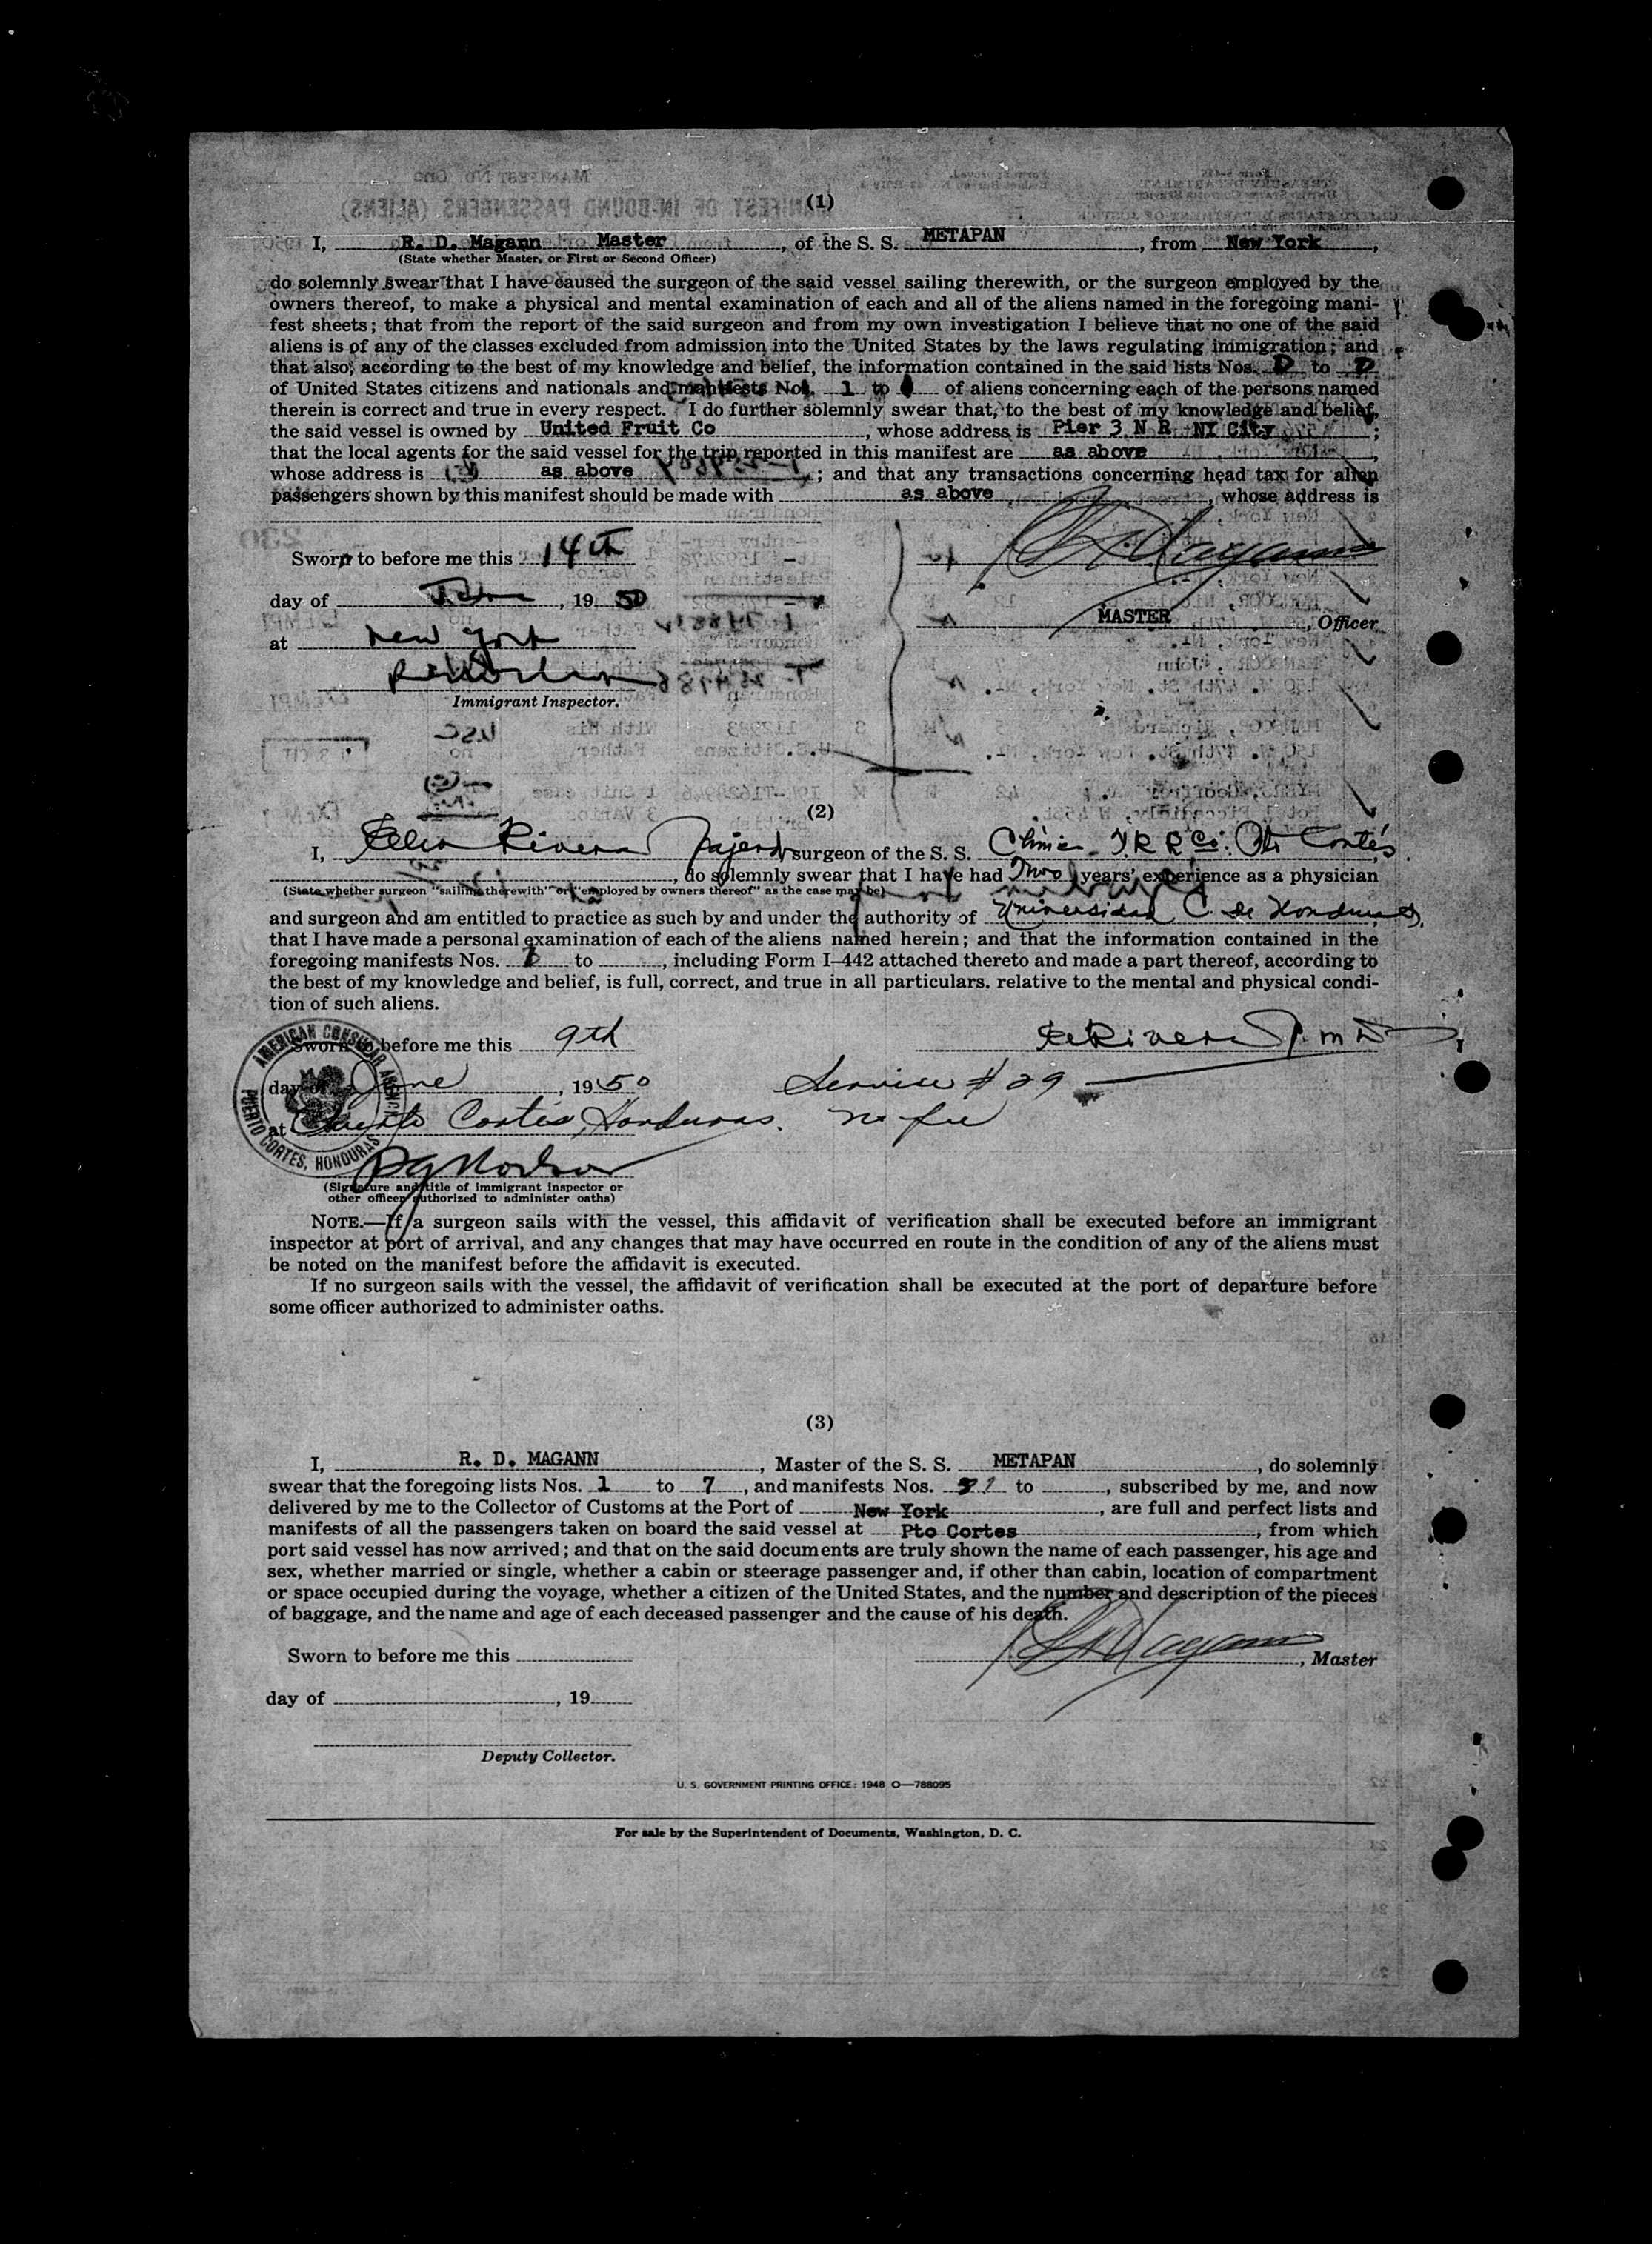 (1)
I, R. D. Magann Master, of the S. S. METAPAN, from New York,
(State whether Master, or First or Second Officer)
do solemnly swear that I have caused the surgeon of the said vessel sailing therewith, or the surgeon employed by the
owners thereof, to make a physical and mental examination of each and all of the aliens named in the foregoing mani-
fest sheets; that from the report of the said surgeon and from my own investigation I believe that no one of the said
aliens is of any of the classes excluded from admission into the United States by the laws regulating immigration; and
that also, according to the best of my knowledge and belief, the information contained in the said lists Nos. to
of United States citizens and nationals and manifests Nos. 1 to of aliens concerning each of the persons named
therein is correct and true in every respect. I do further solemnly swear that, to the best of my knowledge and belief,
the said vessel is owned by United Fruit Co, whose address is Pier 3 N R NY City;
that the local agents for the said vessel for the trip reported in this manifest are as above,
whose address is as above; and that any transactions concerning head tax for alien
passengers shown by this manifest should be made with as above, whose address is
Sworn to before me this 14th
day of June, 1950
MASTER, Officer
at New York
Immigrant Inspector.
(2)
I, Rivera surgeon of the S. S. Clinica T. R R Co. Pto Cortés
, do solemnly swear that I have had Two years' experience as a physician
(State whether surgeon "sailing therewith" or "employed by owners thereof" as the case may be)
and surgeon and am entitled to practice as such by and under the authority of Universidad C. de Honduras,
that I have made a personal examination of each of the aliens named herein; and that the information contained in the
foregoing manifests Nos. 1 to , including Form I–442 attached thereto and made a part thereof, according to
the best of my knowledge and belief, is full, correct, and true in all particulars. relative to the mental and physical condi-
tion of such aliens.
Sworn to before me this 9th
day of June, 1950 Service # 29
at Puerto Cortés, Honduras. no fee
AMERICAN CONSULAR AGENCY PUERTO CORTES, HONDURAS
(Signature and title of immigrant inspector or
other officer authorized to administer oaths)
NOTE.—If a surgeon sails with the vessel, this affidavit of verification shall be executed before an immigrant
inspector at port of arrival, and any changes that may have occurred en route in the condition of any of the aliens must
be noted on the manifest before the affidavit is executed.
If no surgeon sails with the vessel, the affidavit of verification shall be executed at the port of departure before
some officer authorized to administer oaths.
(3)
I, R. D. MAGANN, Master of the S. S. METAPAN, do solemnly
swear that the foregoing lists Nos. 1 to 7, and manifests Nos. to , subscribed by me, and now
delivered by me to the Collector of Customs at the Port of New York, are full and perfect lists and
manifests of all the passengers taken on board the said vessel at Pto Cortes, from which
port said vessel has now arrived; and that on the said documents are truly shown the name of each passenger, his age and
sex, whether married or single, whether a cabin or steerage passenger and, if other than cabin, location of compartment
or space occupied during the voyage, whether a citizen of the United States, and the number and description of the pieces
of baggage, and the name and age of each deceased passenger and the cause of his death.
Sworn to before me this
, Master
day of , 19
Deputy Collector.
U. S. GOVERNMENT PRINTING OFFICE: 1948 O—788095
For sale by the Superintendent of Documents, Washington, D. C.